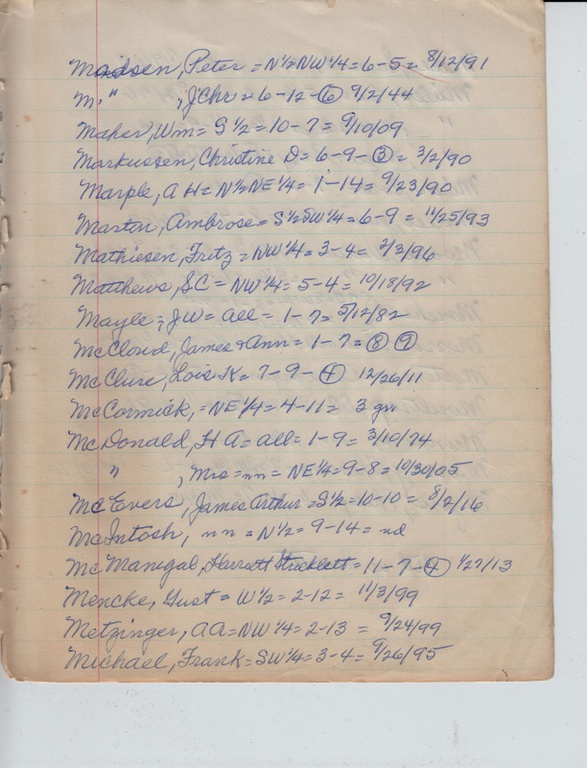 Madsen, Peter = N½NW¼ = 6-5 = 8/12/91
M. " , J Chr = 6-12-⑥ 9/2/44
Maher, Wm = S½ = 10-7 = 9/10/09
Markussen, Christine D = 6-9-③ = 3/2/90
Marple, A H = N½NE¼ = 1-14 = 9/23/90
Martin, Ambrose = S½SW¼ = 6-9 = 11/25/93
Mathiesen, Fritz = NW¼ = 3-4 = 2/3/96
Matthews, SC = NW¼ = 5-4 = 10/18/92
Mayle, JW = all = 1-7 = 5/12/82
McCloud, James & Ann = 1-7 = ⑧ ⑨
McClure, Lois K = 7-9-④ 12/26/11
McCormick, = NE¼ = 4-11 = 3 grs
McDonald, H A = all = 1-9 = 3/10/74
" , Mrs = nn = NE¼ = 9-8 = 10/30/05
McEvers, James Arthur = S½ = 10-10 = 8/2/16
McIntosh, nn = N½ = 9-14 = nd
McManigal, Harriett = 11-7-④ 1/27/13
Mencke, Gust = W½ = 2-12 = 11/3/99
Metzinger, AA = NW¼ = 2-13 = 9/24/99
Michael, Frank = SW¼ = 3-4 = 9/26/95